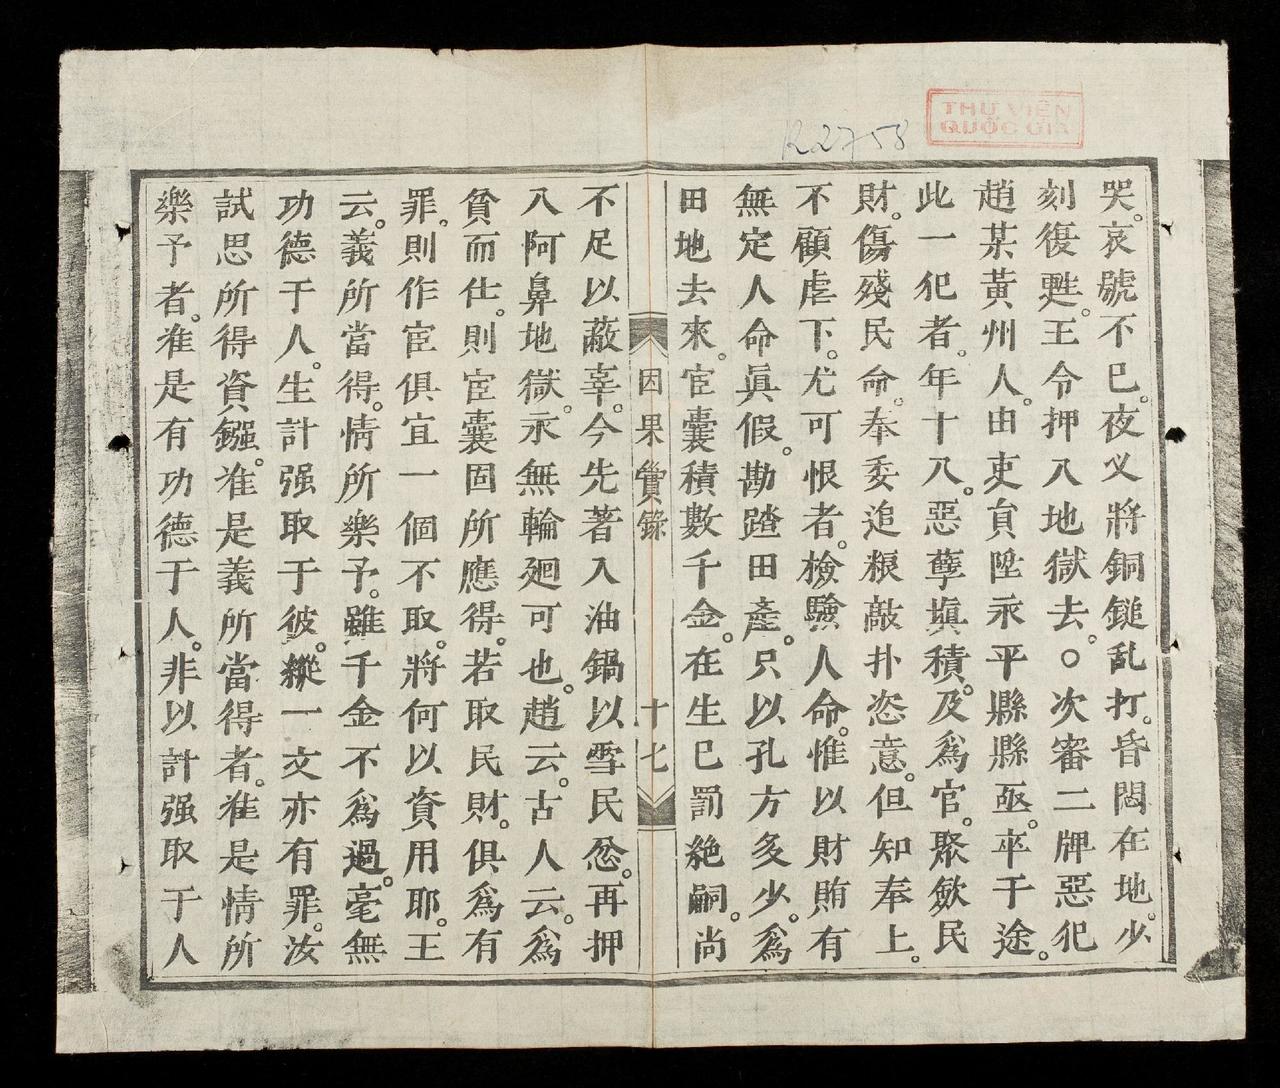 THƯ VIỆN
QUỐC GIA
R2758
哭。哀號不已。夜义將銅鎚乱打。昏悶在地。少
刻復甦。王令押入地獄去。○次審二牌惡犯
趙某黃州人。由吏員陞永平縣縣丞。卒于途。
此一犯者。年十八。惡孽塡積。及爲官。聚斂民
財。傷殘民命。奉委追粮敲扑恣意。但知奉上。
不顧虐下。尤可恨者。檢驗人命。惟以財賄有
無定人命眞假。勘踏田產。只以孔方多少。爲
田地去來。宦囊積數千金。在生已罰絶嗣。尚
因果實錄
十七
不足以蔽辜。今先著入油鍋以雪民忿。再押
入阿鼻地獄。永無輪廻可也。趙云。古人云。爲
貧而仕。則宦囊固所應得。若取民財。俱爲有
罪。則作宦俱宜一個不取。將何以資用耶。王
云。義所當得。情所樂予。雖千金不爲過。毫無
功德于人。生計强取于彼。縱一文亦有罪。汝
試思所得資鏹。准是義所當得者。准是情所
樂予者。准是有功德于人。非以計强取于人